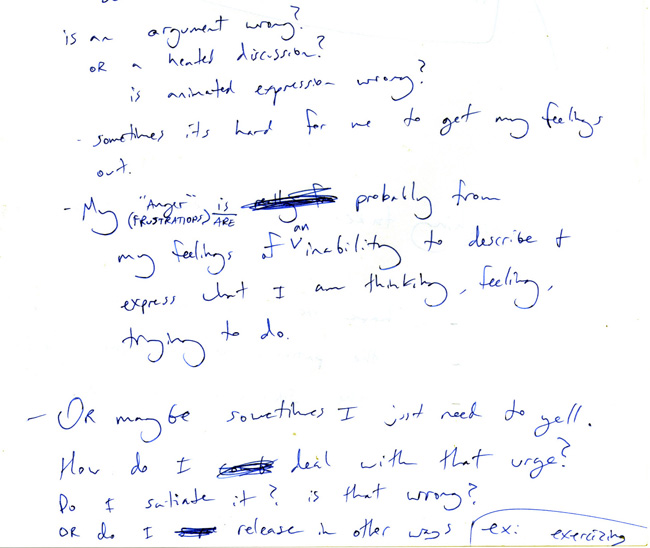 is an argument wrong?
OR a heated discussion?
is animated expression wrong?
- sometimes its hard for me to get my feelings
out.
- My "Anger" (FRUSTRATIONS) is/ARE probably from
my feelings of an inability to describe &
express what I am thinking, feeling,
trying to do.
- OR maybe sometimes I just need to yell.
How do I deal with that urge?
Do I satiate it? is that wrong?
OR do I release in other ways (ex: exercizing